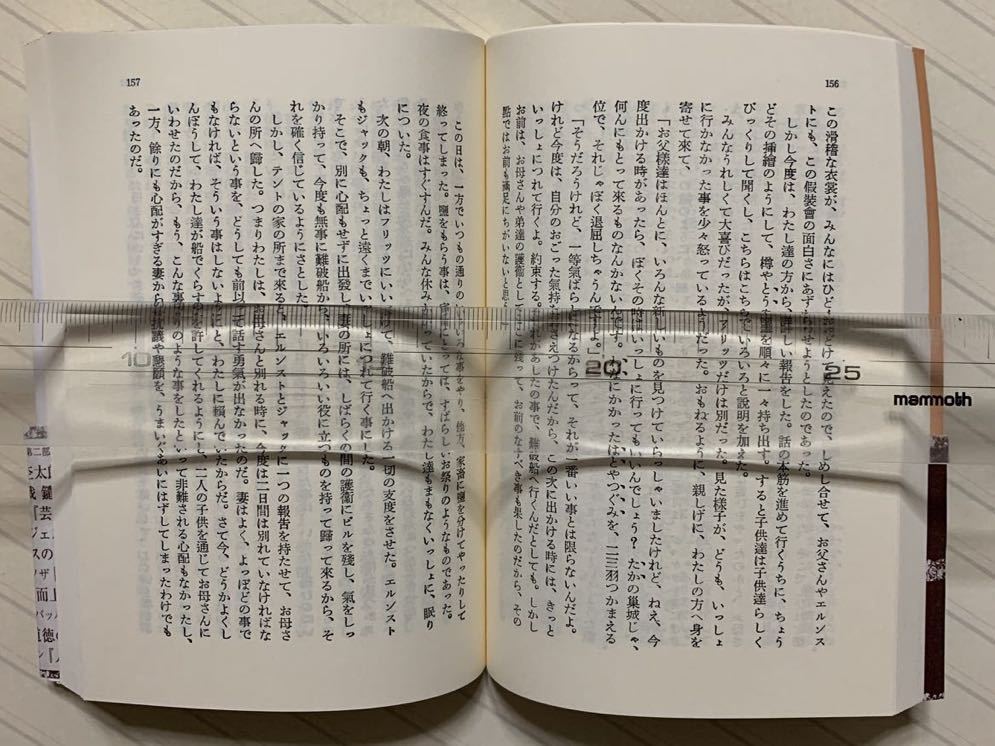 156
この滑稽な衣裳が、みんなにはひどくおどけて見えたので、しめし合せて、お父さんやエルンス
トにも、この假裝會の面白さにあずからせようとしたのであった。
しかし今度は、わたし達の方から、詳しい報告をした。話の本筋を進めて行くうちに、ちょう
どその挿繪のようにして、樽やとう
を順々に一々持ち出す。すると子供達は子供達らしく
びっくりして聞くし、こちらはこちらでいろいろと説明を加えた。
みんなうれしくて大喜びだったが、フリッツだけは別だった。見た様子が、どうも、いっしょ
に行かなかった事を少々怒っているようだった。おもねるように、親しげに、わたしの方へ身を
寄せて來て、
「お父樣達はほんとに、いろんな新しいものを見つけていらっしゃいましたけれど、ねえ、今
度出かける時があったら、ぼくその時はいっしょに行ってもいいんでしょう？ たかの巢城じゃ、
何んにもとって來るものなんかないんです。
にかかったはとやつぐみを、二三羽つかまえる
位で、それじゃぼく退屈しちゃうんですよ。」
「そうだろうけれど、一等氣ばらしになるからって、それが一番いい事とは限らないんだよ。
けれど今度は、自分のおごった氣持を
えつけたんだから、この次に出かける時には、きっと
いっしょにつれて行くよ。約束する。それがあしたの事で、難破船へ行くんだとしても。しかし
お前は、お母さんや弟達の護衞としてここに殘って、お前のなすべき事も果したのだから、その
點ではお前も滿足にちがいないと思
157
この日は、一方でいつもの通りのいろいろな事をやり、他方、家畜に鹽を分けてやったりして
終ってしまった。鹽をもらう事は、家畜にとっては、すばらしいお祭りのようなものであった。
夜の食事はすぐすんだ。みんな休みたがっていたからで、わたし達もまもなくいっしょに、眠り
についた。
次の朝、わたしはフリッツにいいつけて、難破船へ出かける一切の支度をさせた。エルンスト
もジャックも、ちょっと遠くまでいっしょにつれて行く事にした。
そこで、別に心配もせずに出發し、妻の所には、しばらくの間の護衞にビルを殘し、氣をしっ
かり持って、今度も無事に難破船から、いろいろいい役に立つものを持って歸って來るから、そ
れを確く信じているようにさとした。
しかし、テントの家の所まで來ると、エルンストとジャックに一つの報告を持たせて、お母さ
んの所へ歸した。つまりわたしは、お母さんと別れる時に、今度は二日間は別れていなければな
らないという事を、どうしても前以って話す勇氣が出なかったのだ。妻はよく、よっぽどの事で
もなければ、そういう事はしないようにと、わたしに賴んでいたからだ。さて今、どうかよくし
んぼうして、わたし達が船でくらすのを許してくれるようにと、二人の子供を通じてお母さんに
いわせたのだから、もう、こんな事
のような事をしたといって非難される心配もなかったし、
一方、餘りにも心配がすぎる妻からの抗議や懇願を、うまいぐあいにはずしてしまったわけでも
あったのだ。
10
20
25
mammoth
第二部